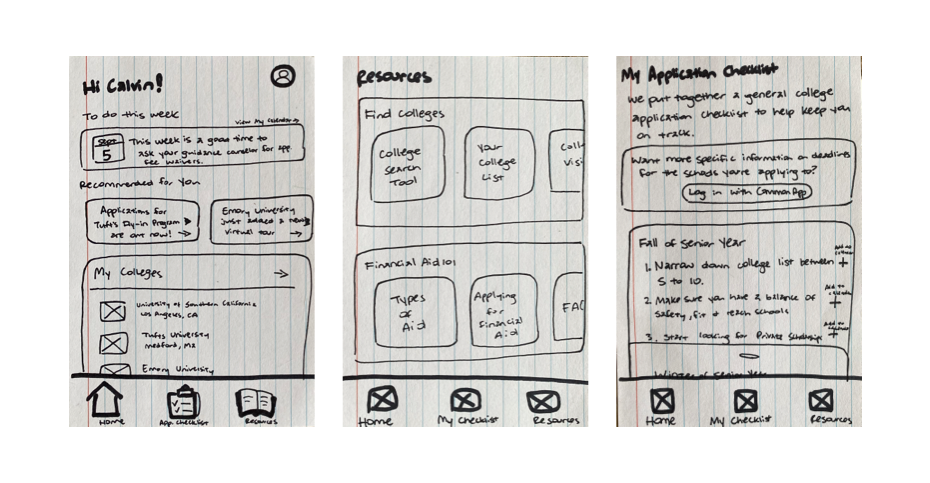 Hi Calvin!
To do this week
View My Calendar
SEPT
5
This week is a good time to
ask your guidance counselor for app
fee waivers.
Recommended for you
Applications for
Tuft's Fly-in Program
are out now!
Emory University
just added a new
virtual tour
My Colleges
University of Southern California
Los Angeles, CA
Tufts University
Medford, MA
Emory University
Home
App. Checklist
Resources
Resources
Find Colleges
College
Search
Tool
Your
College
List
Coll
Visi
Financial Aid 101
Types
of
Aid
Applying
for
Financial
Aid
FAQ
Home
My Checklist
Resources
My Application Checklist
We put together a general college
application checklist to help keep you
on track.
Want more specific information on deadlines
for the schools you're applying to?
Log in with CommonApp
Fall of Senior Year
1. Narrow down college list between
5 to 10.
Add to
calendar
+
2. Make sure you have a balance of
safety, fit & reach schools
Add to
calendar
+
3. Start looking for Private Scholarships
Add to
calendar
+
Winter of Senior Year
Home
My Checklist
Resources